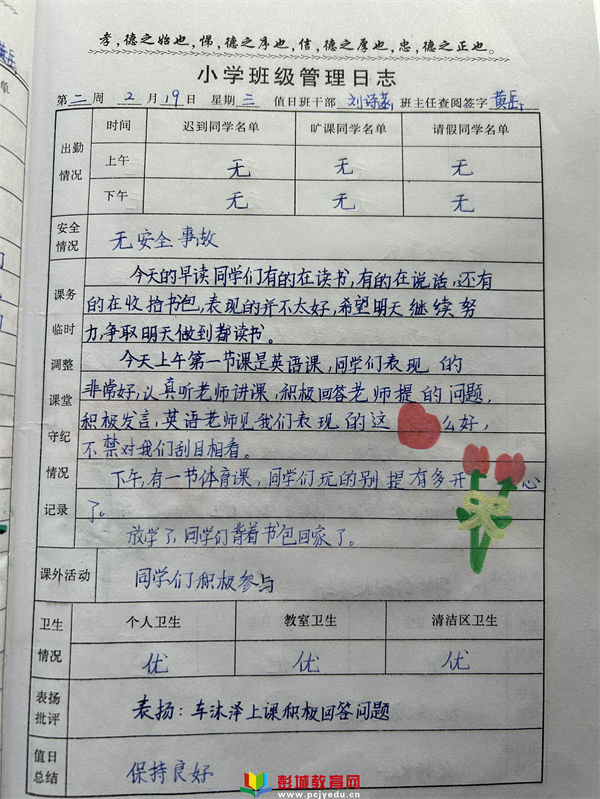 孝,德之始也,悌,德之序也,信,德之厚也,忠,德之正也。
小学班级管理日志
第二周 2月19日 星期三 值日班干部 刘诗菡 班主任查阅签字 黄岳
出勤情况 时间 迟到同学名单 旷课同学名单 请假同学名单
上午 无 无 无
下午 无 无 无
安全情况 无安全事故
课务临时调整课堂守纪情况记录
今天的早读同学们有的在读书,有的在说话,还有
的在收拾书包,表现的并不太好,希望明天继续努
力,争取明天做到都读书。
今天上午第一节课是英语课,同学们表现的
非常好,认真听老师讲课,积极回答老师提的问题,
积极发言,英语老师见我们表现的这么好,
不禁对我们刮目相看。
下午,有一节体育课,同学们玩的别提有多开心
了。
放学了,同学们背着书包回家了。
课外活动 同学们积极参与
卫生情况 个人卫生 教室卫生 清洁区卫生
优 优 优
表扬批评 表扬:车沐泽上课积极回答问题
值日总结 保持良好
彭城教育网
www.pcjyedu.cn